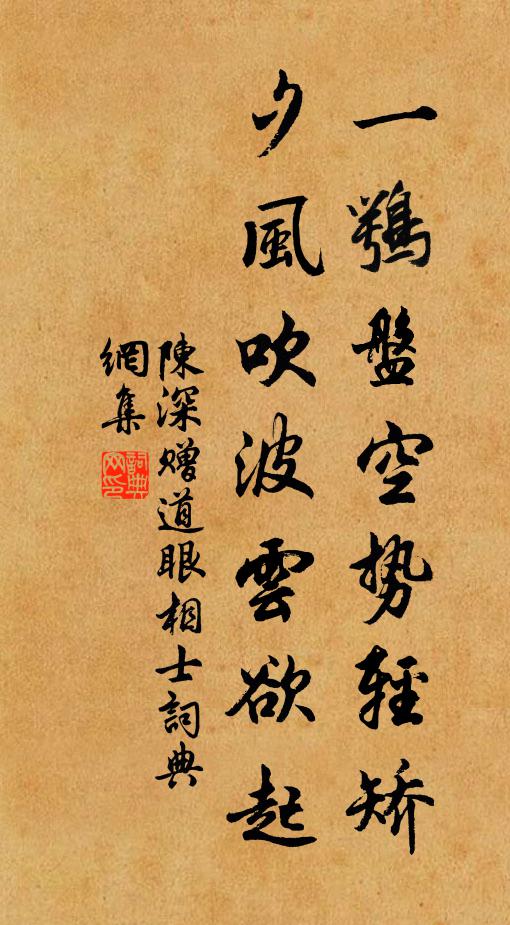 一鶚盤空势輕矫
夕風吹波雲欲起
陳深赠道眼相士詞典
網集
詞典
网印